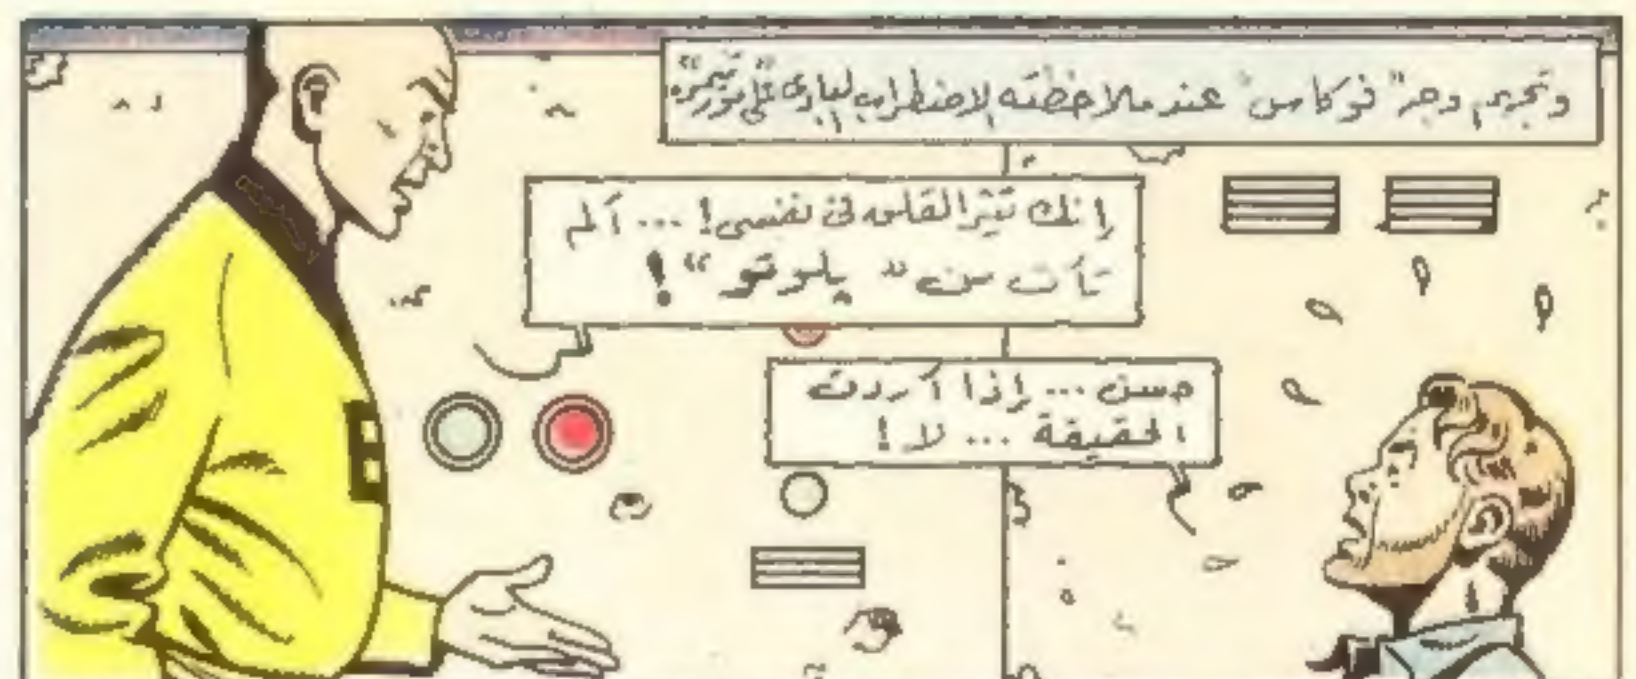 وتجهم وجه "فوكاس" عند ملاحظته الاضطراب البادى على
إنك تثير القلق فى نفسى! ... ألم
تأت من « پلوتو »!
حسن ... إذا أردت
الحقيقة ... لا!